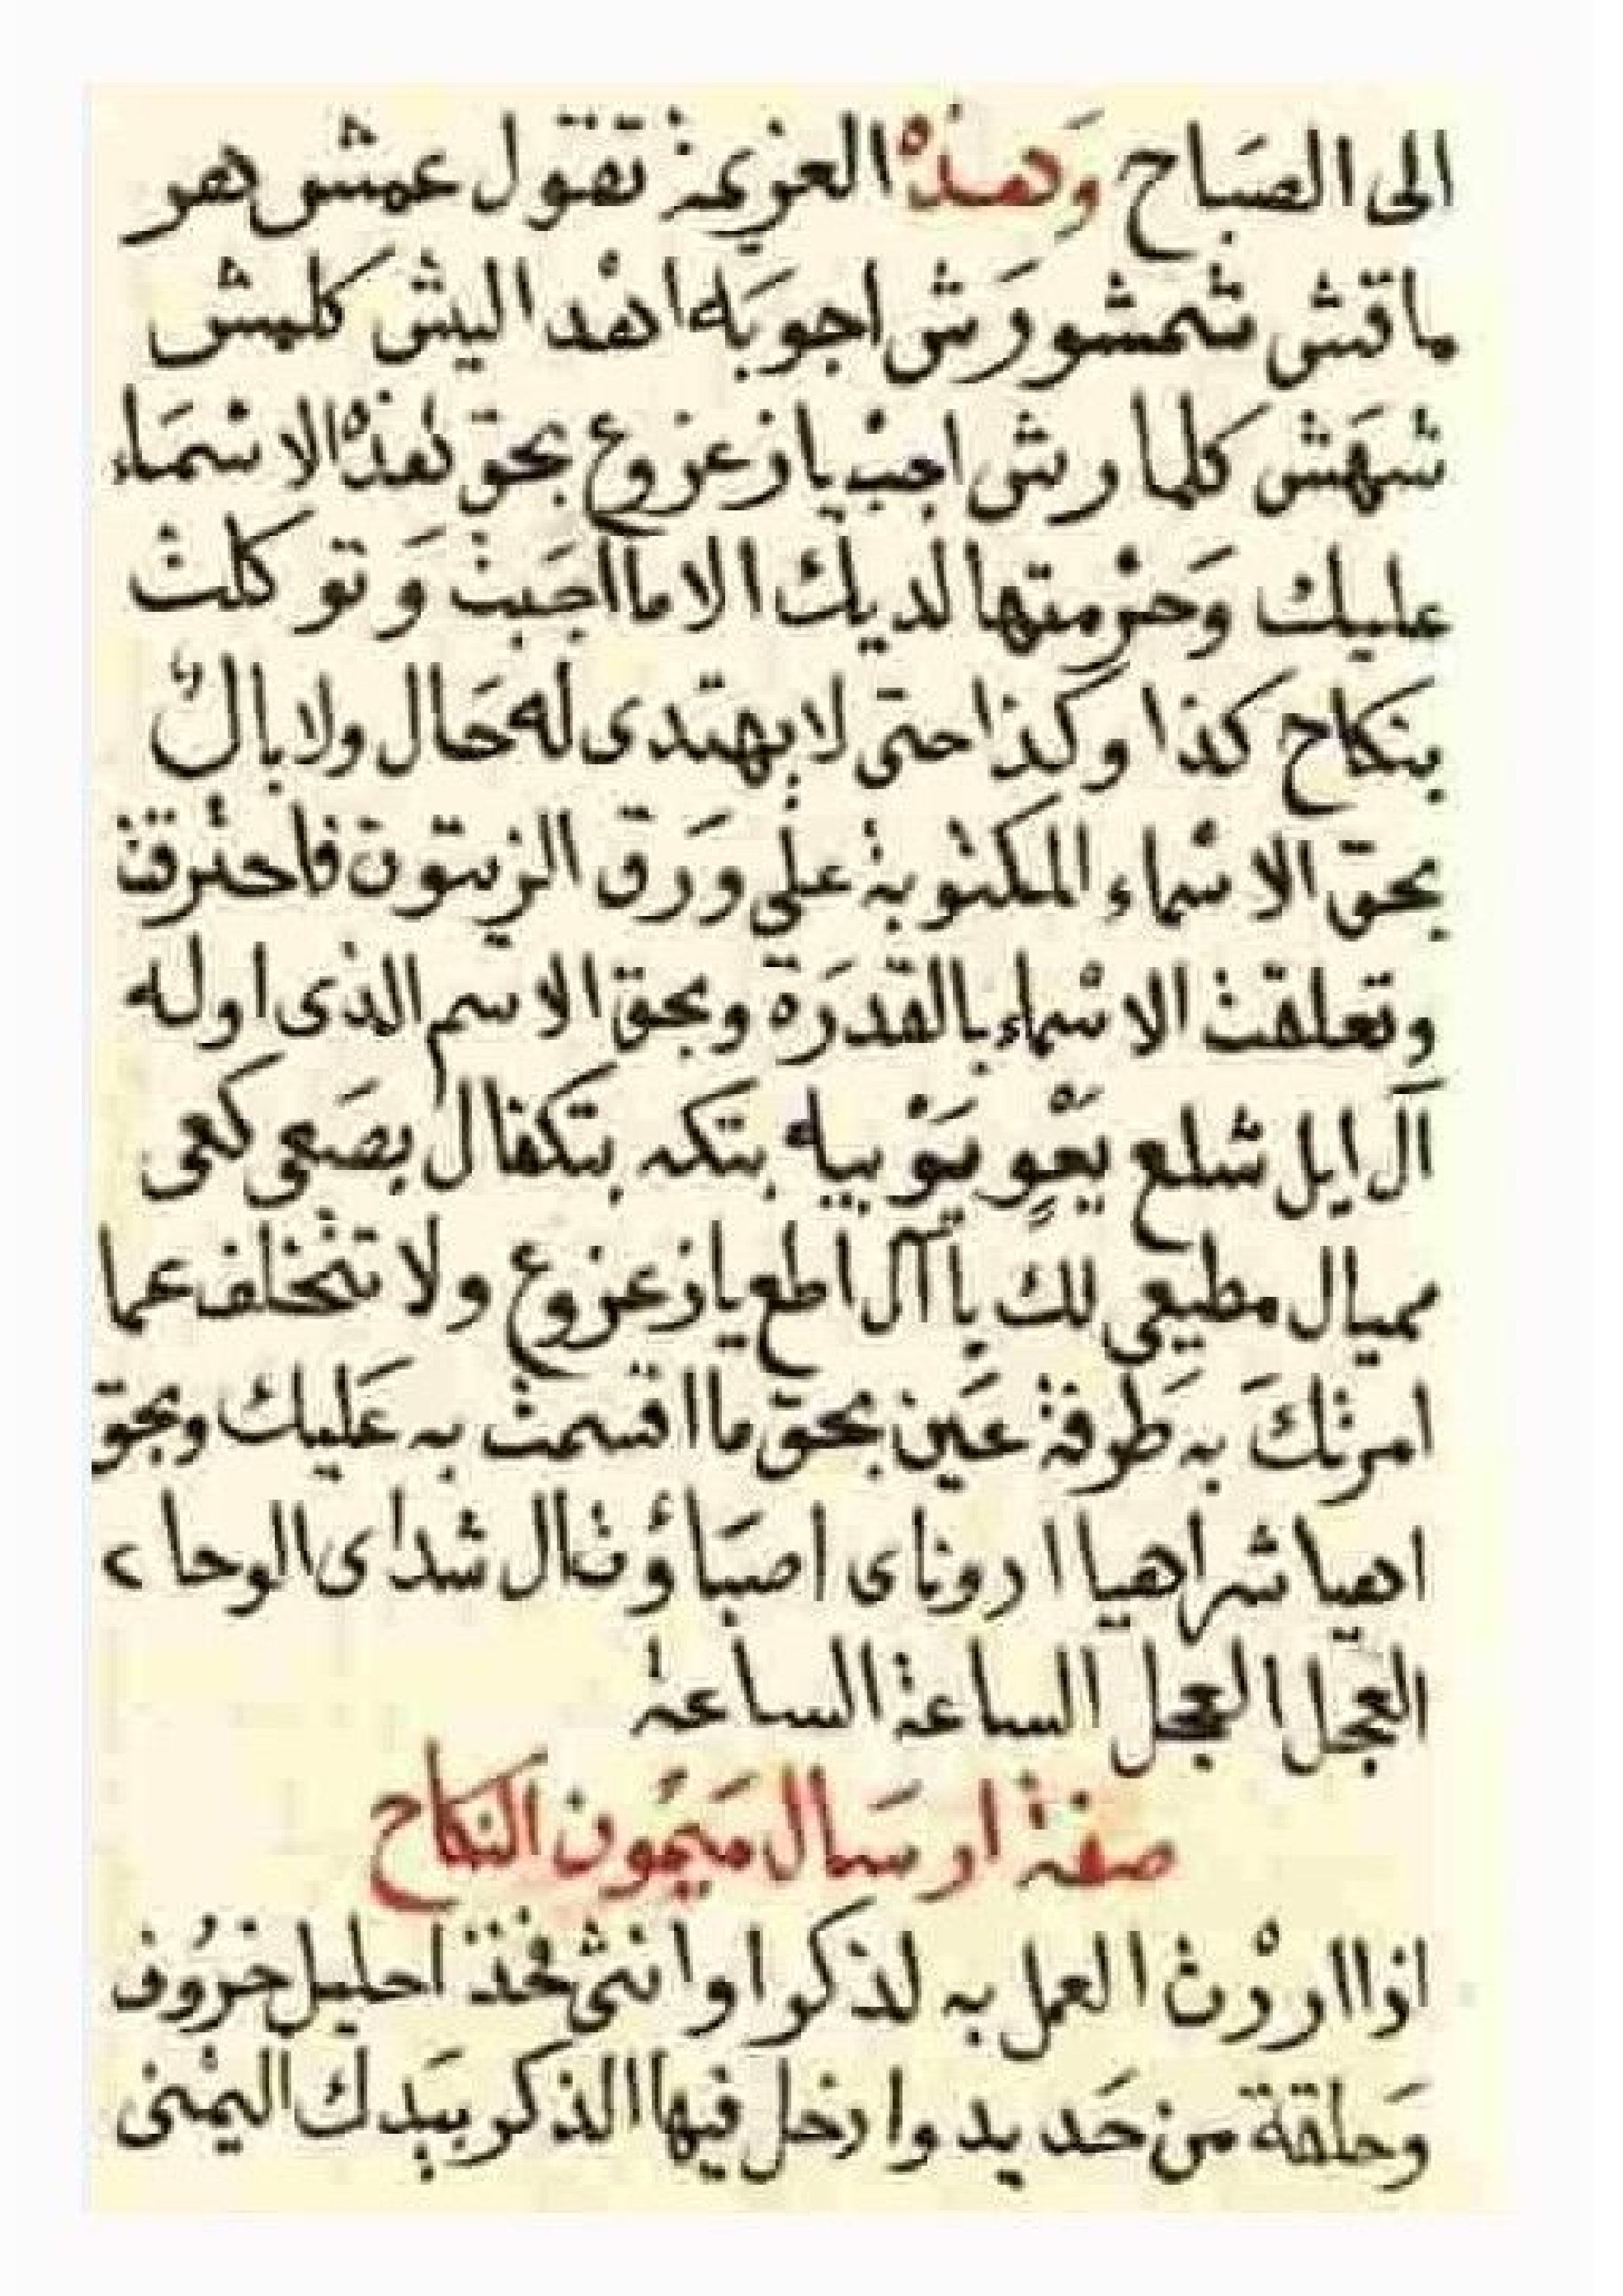 الى الصَباح وَهذه العزيمة تقول عمش هر
ماقش شمشورش اجوبَه اهد اليش كلمش
شهَش كلما رش اجب يا زعزوع بحق هذه الاسْمَاء
عليك وَحرْمتها لديك الا ما اجَبت وَ توَكلت
بنكاح كذا وكذا حتى لا يهتدى له حَال ولا بال
بحق الاسْماء المكتوبة على وَرَق الزيتون فاحترقت
وتعلقت الاسْماء بالقدرَة وبحق الاسم الذى اوله
آل ايل شلع يَعْوٍ يَوْبيه بتكه بتكفال بصَعى كعى
مميال مطيعى لك يا آل اطع يا زعزوع ولا تتخلف عما
امرتكَ به طَرفة عَين بحق ما اقسمت به عَليك وبحق
اهيا شراهيا ادوناى اصبَاؤت ال شداى الوحا ٢
العجل العجل الساعة الساعة
صفة ارسَال مَيمُون النكاح
اذا اردْت العمل به لذكر او انثى فخذ احليل خرُوف
وَحلقة من حَديد وادخل فيها الذكر بيَدك اليمْنى